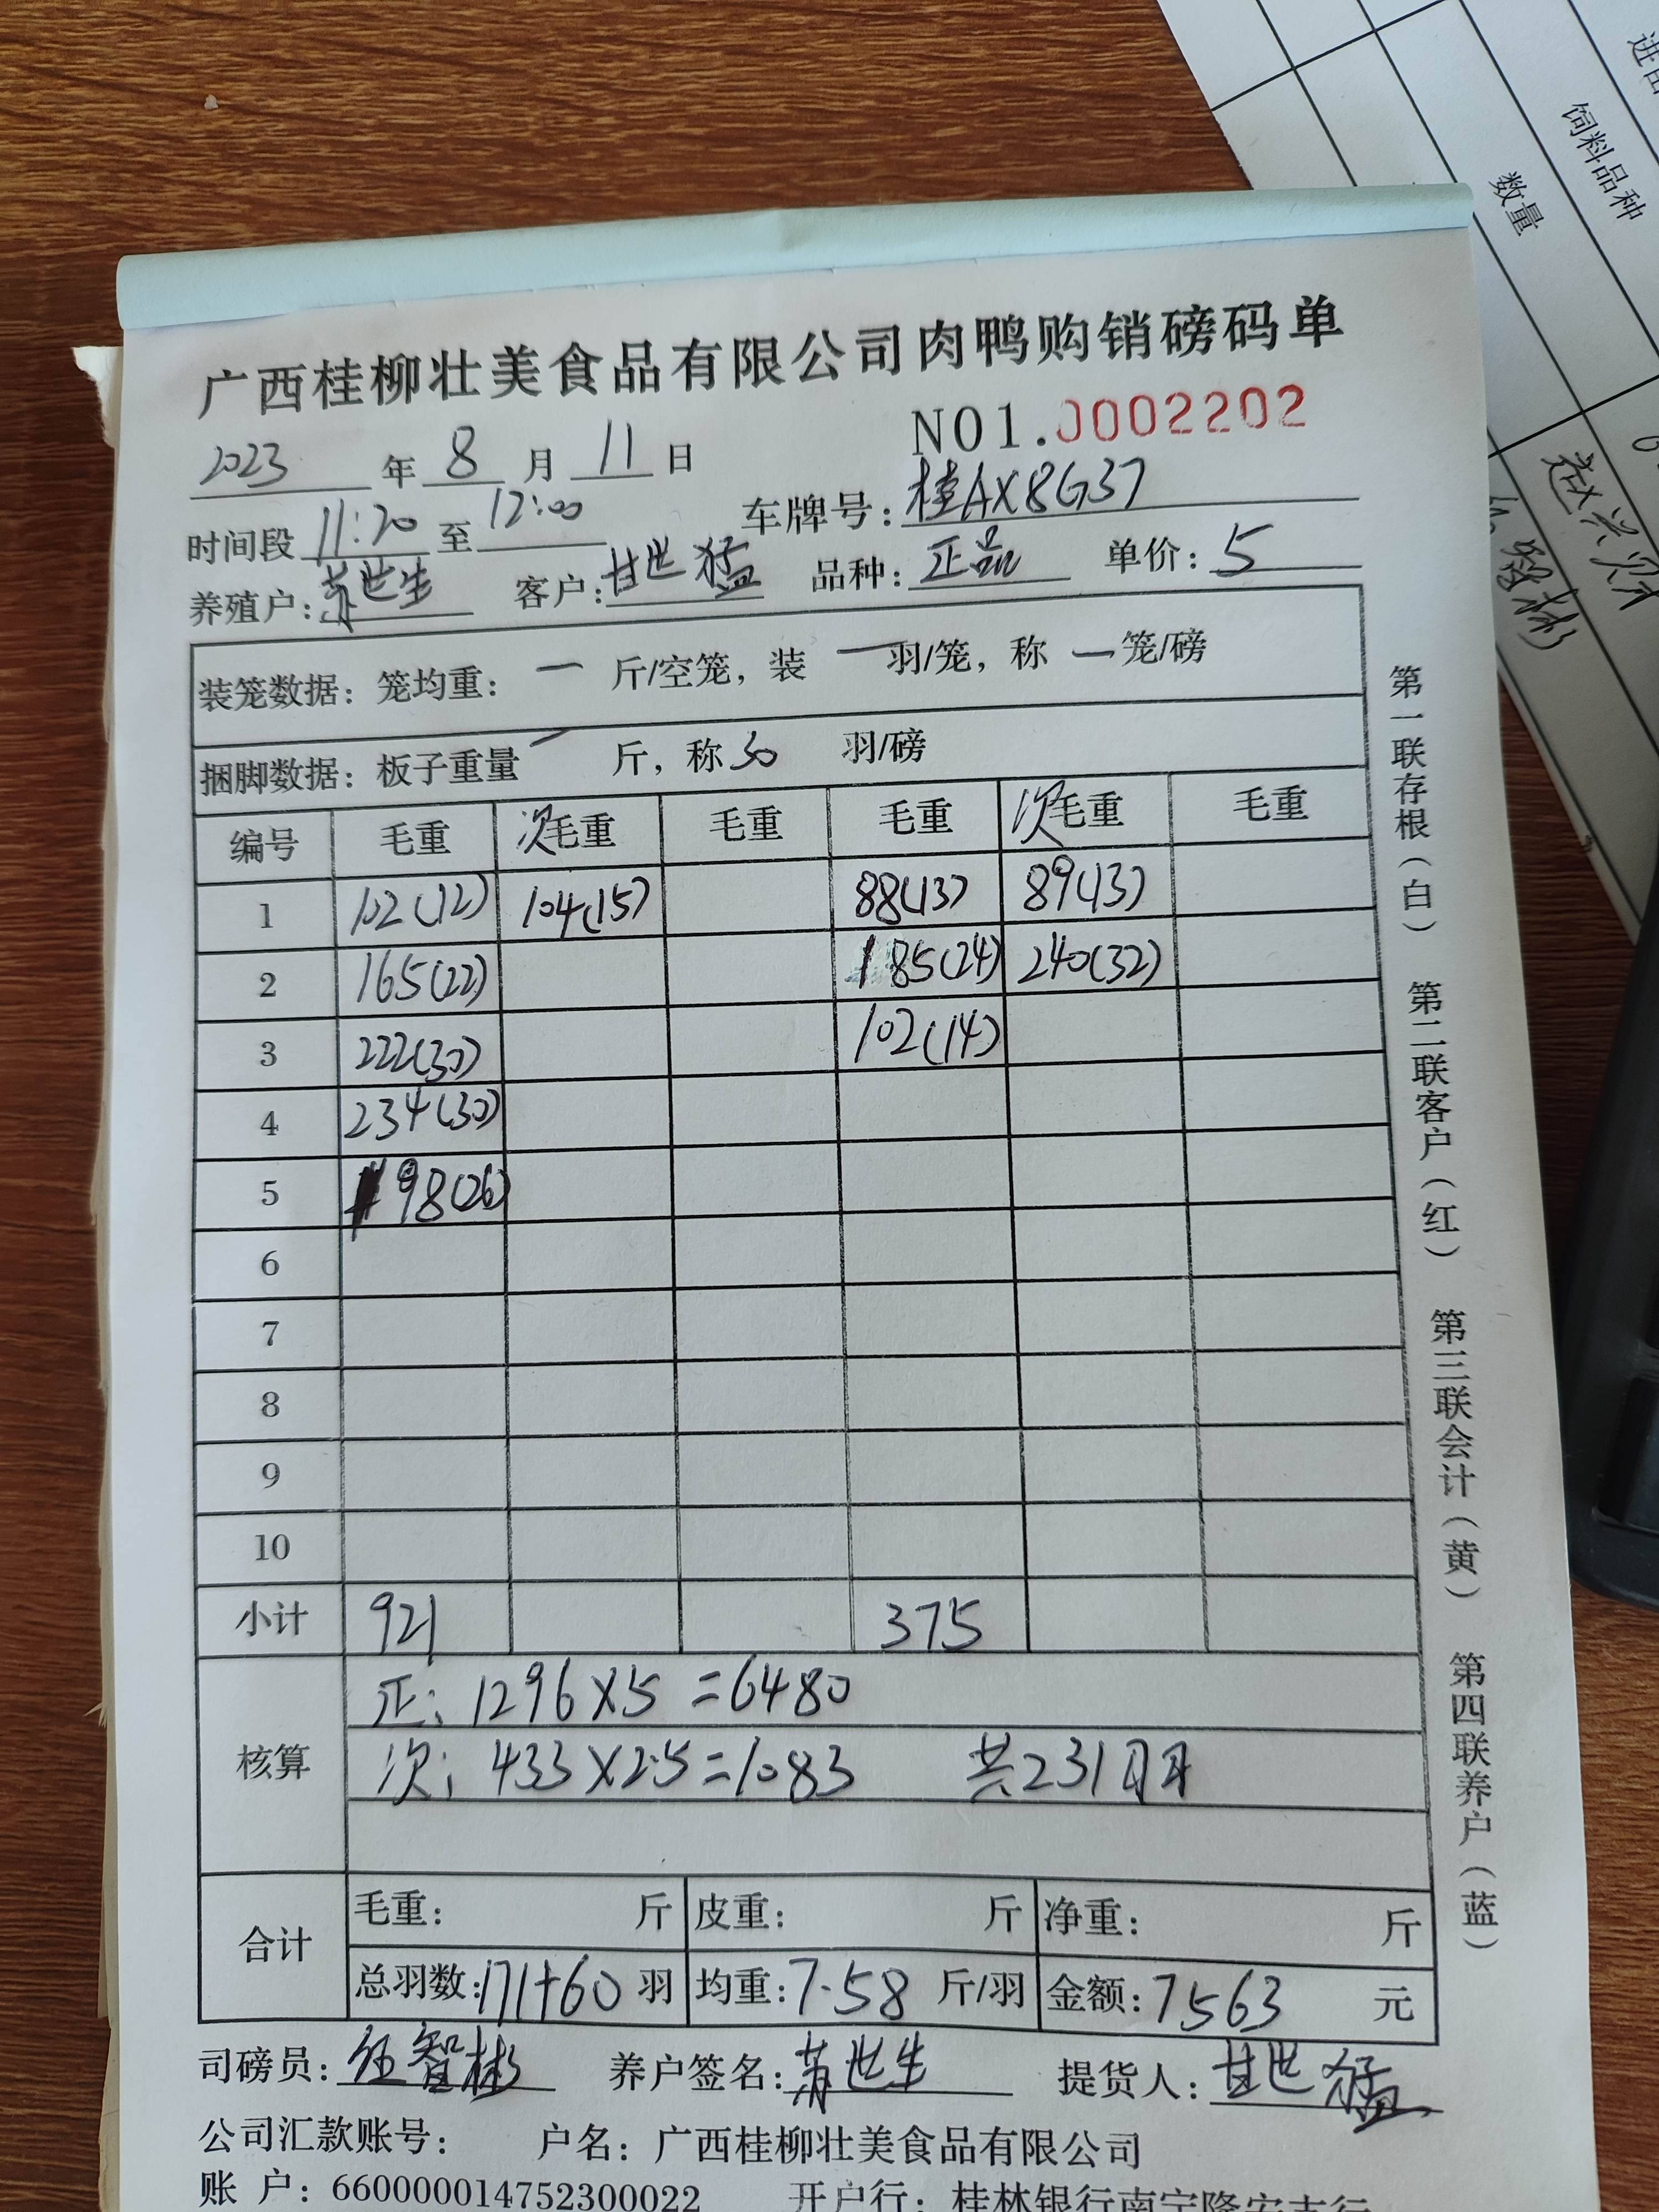 进苗
饲料品种
数量
广西桂柳壮美食品有限公司肉鸭购销磅码单
NO1.0002202
2023 年 8 月 11 日
时间段 11:20 至 12:00 车牌号: 桂AX8G37
养殖户: 苏世生 客户: 甘世猛 品种: 正品 单价: 5
装笼数据: 笼均重: 一 斤/空笼, 装 一 羽/笼, 称 一 笼/磅
捆脚数据: 板子重量 一 斤, 称 30 羽/磅
编号 毛重 次毛重 毛重 毛重 次毛重 毛重
1 102(12) 104(15) 88(13) 89(13)
2 165(22) 185(24) 240(32)
3 222(30) 102(14)
4 234(30)
5 198(26)
6
7
8
9
10
小计 921 375
核算 正: 1296×5=6480
次: 433×2.5=1083 共231
合计 毛重: 斤 皮重: 斤 净重: 斤
总羽数: 171+60 羽 均重: 7.58 斤/羽 金额: 7563 元
司磅员: 伍智彬 养户签名: 苏世生 提货人: 甘世猛
公司汇款账号: 户名: 广西桂柳壮美食品有限公司
账 户: 660000014752300022 开户行: 桂林银行南宁隆安支行
第一联存根(白) 第二联客户(红) 第三联会计(黄) 第四联养户(蓝)